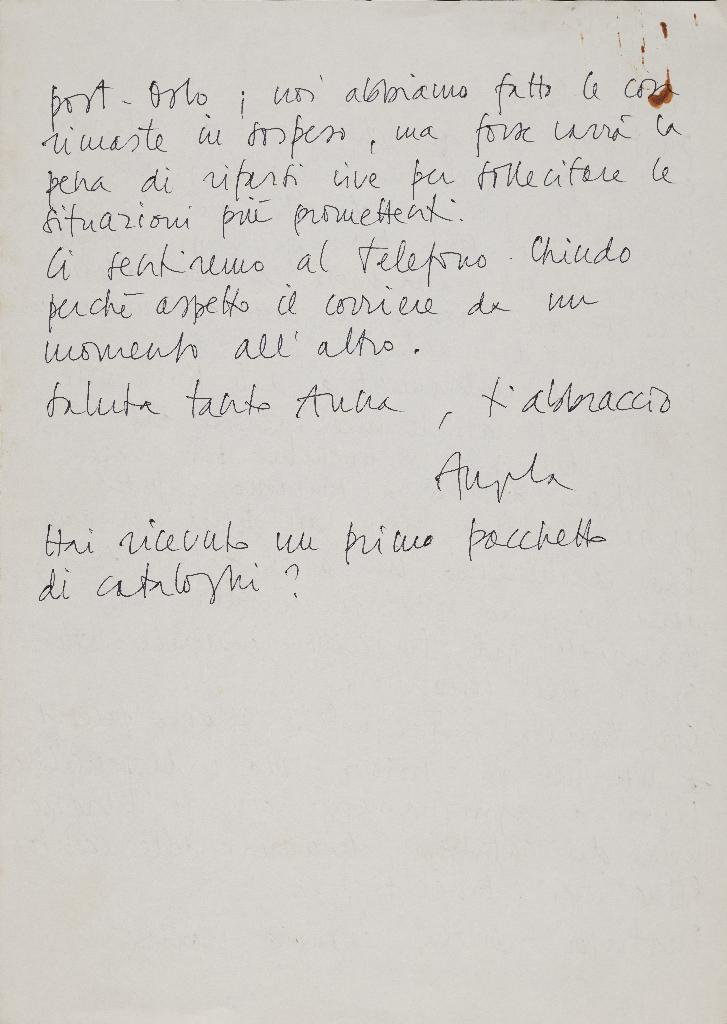 post-Oslo ; noi abbiamo fatto le cose
rimaste in sospeso, ma forse varrà la
pena di rifarsi vive per sollecitare le
situazioni più promettenti.
Ci sentiremo al telefono. Chiudo
perché aspetto il corriere da un
momento all'altro.
Saluta tanto Anna, t'abbraccio
Angela
Hai ricevuto un primo pacchetto
di cataloghi?